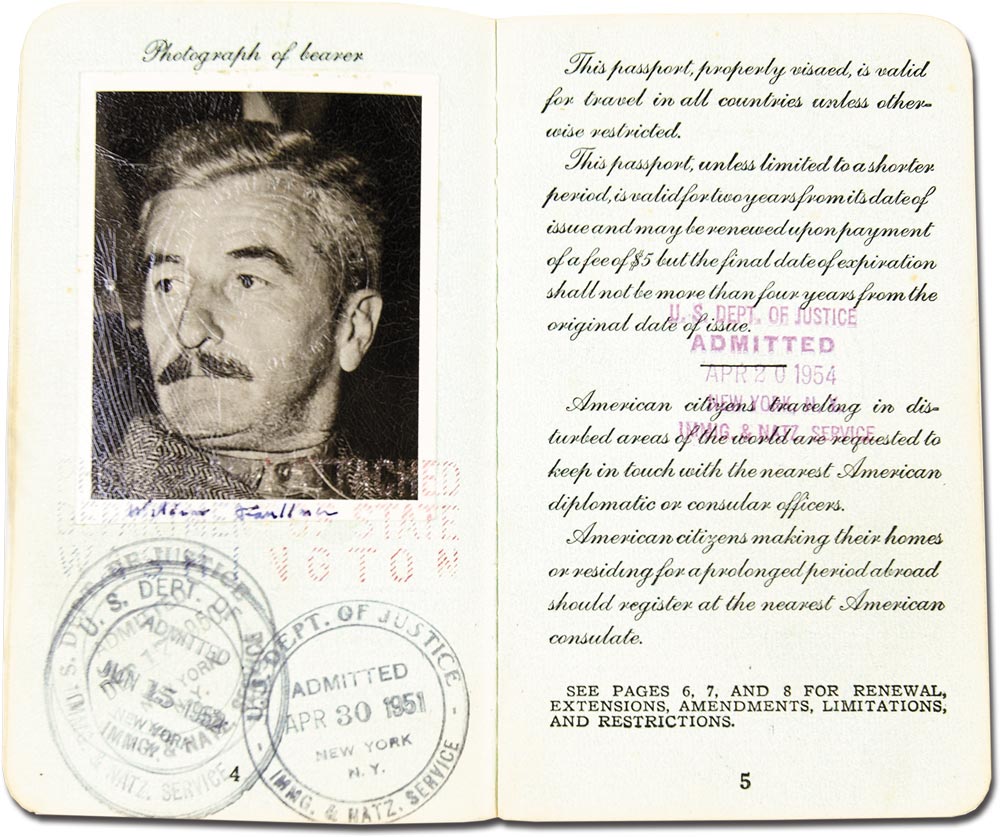 Photograph of bearer
William Faulkner
DEPARTMENT OF STATE
WASHINGTON
U. S. DEPT. OF JUSTICE
ADMITTED
JUN 15 1952
NEW YORK
IMMG. & NATZ. SERVICE
U. S. DEPT. OF JUSTICE
ADMITTED
APR 30 1951
NEW YORK
N. Y.
IMMG. & NATZ. SERVICE
4
This passport, properly visaed, is valid
for travel in all countries unless other-
wise restricted.
This passport, unless limited to a shorter
period, is valid for two years from its date of
issue and may be renewed upon payment
of a fee of $5 but the final date of expiration
shall not be more than four years from the
original date of issue.
U. S. DEPT. OF JUSTICE
ADMITTED
APR 20 1954
NEW YORK, N. Y.
IMMIG. & NATZ. SERVICE
American citizens traveling in dis-
turbed areas of the world are requested to
keep in touch with the nearest American
diplomatic or consular officers.
American citizens making their homes
or residing for a prolonged period abroad
should register at the nearest American
consulate.
SEE PAGES 6, 7, AND 8 FOR RENEWAL,
EXTENSIONS, AMENDMENTS, LIMITATIONS,
AND RESTRICTIONS.
5